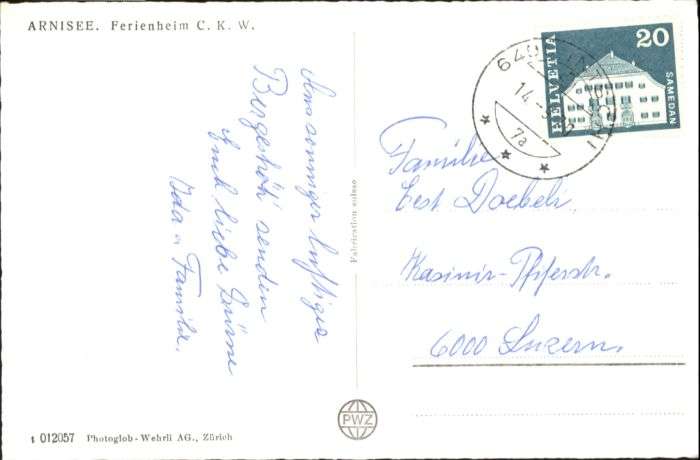 ARNISEE. Ferienheim C. K. W.
Aus sonniger luftiger
Bergeshöh' senden
Euch liebe Grüsse
Ida u Familie.
Fabrication suisse
HELVETIA
20
SAMEDAN
14
7a
Familie
Doebeli
Kasimir-Pfyferstr.
6000 Luzern.
PWZ
t 012057 Photoglob-Wehrli AG., Zürich